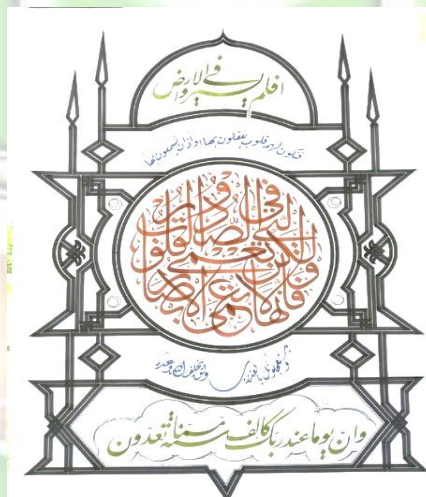 افلم يسيروا في الارض
فتكون لهم قلوب يعقلون بها او اذان يسمعون بها
فانها لا تعمى الابصار ولكن تعمى القلوب التي في الصدور
ويستعجلونك بالعذاب ولن يخلف الله وعده
وان يوما عند ربك كالف سنة مما تعدون